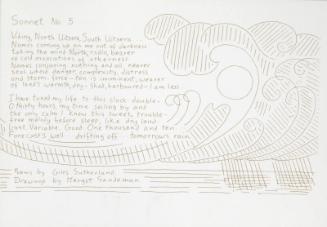 Sonnet No 5
Viking, North Utsira, South Utsera
Names coming up on me out of darkness
Taking the mind North, radio, bearer
of cold invocations of otherness
Names conjuring nothing and all, nearer
seas where danger, complexity, distress
and storm force-ten is imminent, wearer
of land's warmth, dry-shod, harboured-I am less
I have tuned my life to this clock double-
O thirty hours, my time sailing by and
the only calm I know this sweet, trouble-
free melody before sleep, like dry land
Last. Variable. Good One thousand and ten.
Forecast's well drifting off tomorrow's rain
Poem by Giles Sutherland
Drawing by Margot Sandeman